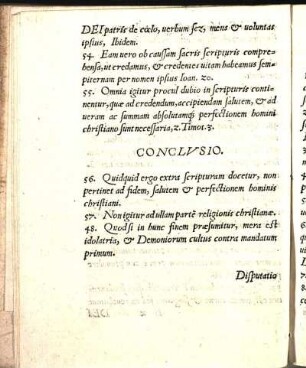 DEI patris de cœlo, uerbum scz, mens & voluntas
ipsius, Ibidem.
54. Eam uero ob caussam sacris scripturis compre-
hensa, ut credamus, & credentes uitam habeamus sem-
piternam per nomen ipsius Ioan. 20.
55. Omnia igitur procul dubio in scripturis conti-
nentur, quæ ad credendum, accipiendam salutem, & ad
ueram ac summam absolutamq; perfectionem homini
christiano sunt necessaria, 2. Timot. 3.
CONCLVSIO.
56. Quidquid ergo extra scripturam docetur, non
pertinet ad fidem, salutem & perfectionem hominis
christiani.
57. Non igitur ad ullam partẽ religionis christianæ.
48. Quod si in hunc finem præfinitur, mera est
idolatria, & Demoniorum cultus contra mandatum
primum.
Disputatio